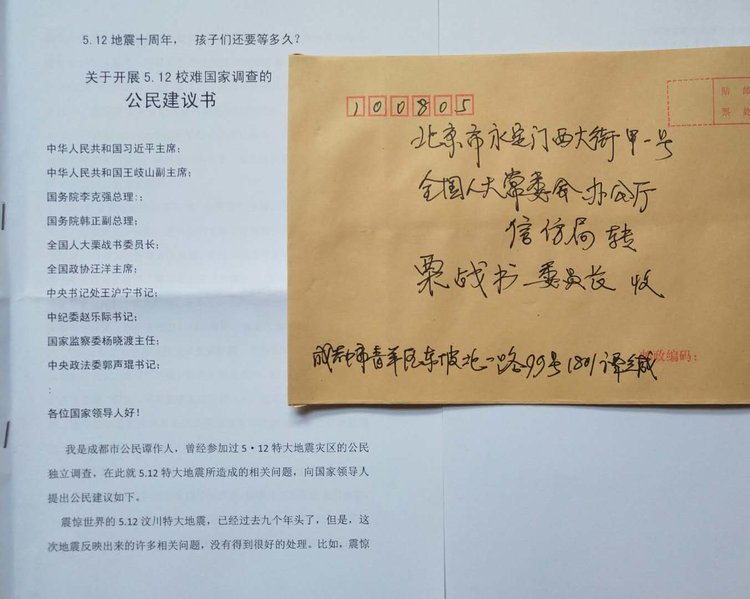 5.12 地震十周年， 孩子们还要等多久？
关于开展 5.12 校难国家调查的
公民建议书
中华人民共和国习近平主席；
中华人民共和国王岐山副主席；
国务院李克强总理：;
国务院韩正副总理；
全国人大栗战书委员长；
全国政协汪洋主席；
中央书记处王沪宁书记；
中纪委赵乐际书记；
国家监察委杨晓渡主任；
中央政法委郭声琨书记；
:
各位国家领导人好！
我是成都市公民谭作人，曾经参加过 5·12 特大地震灾区的公民
独立调查，在此就 5.12 特大地震所造成的相关问题，向国家领导人
提出公民建议如下。
震惊世界的 5.12 汶川特大地震，已经过去九个年头了，但是，这
次地震反映出来的许多相关问题，没有得到很好的处理。比如，震惊
100805
贴 邮
票 处
北京市永定门西大街甲一号
全国人大常委会办公厅
信访局转
栗战书 委员长 收
成都市青羊区东坡北一路99号1801 谭缄
邮政编码：